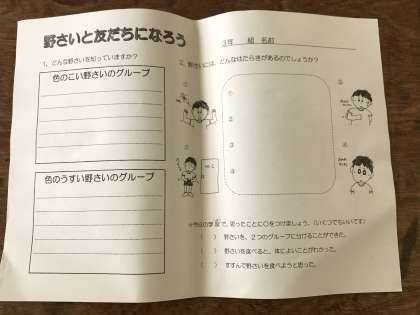 野さいと友だちになろう
3年　組　名前
1、どんな野さいを知っていますか？
色のこい野さいのグループ
色のうすい野さいのグループ
2、野さいには、どんなはたらきがあるのでしょうか？
①
②
③
④
☆今日の学習で、思ったことに○をつけましょう。(いくつでもいいです)
(　) 野さいを、2つのグループに分けることができた。
(　) 野さいを食べると、体によいことがわかった。
(　) すすんで野さいを食べようと思った。